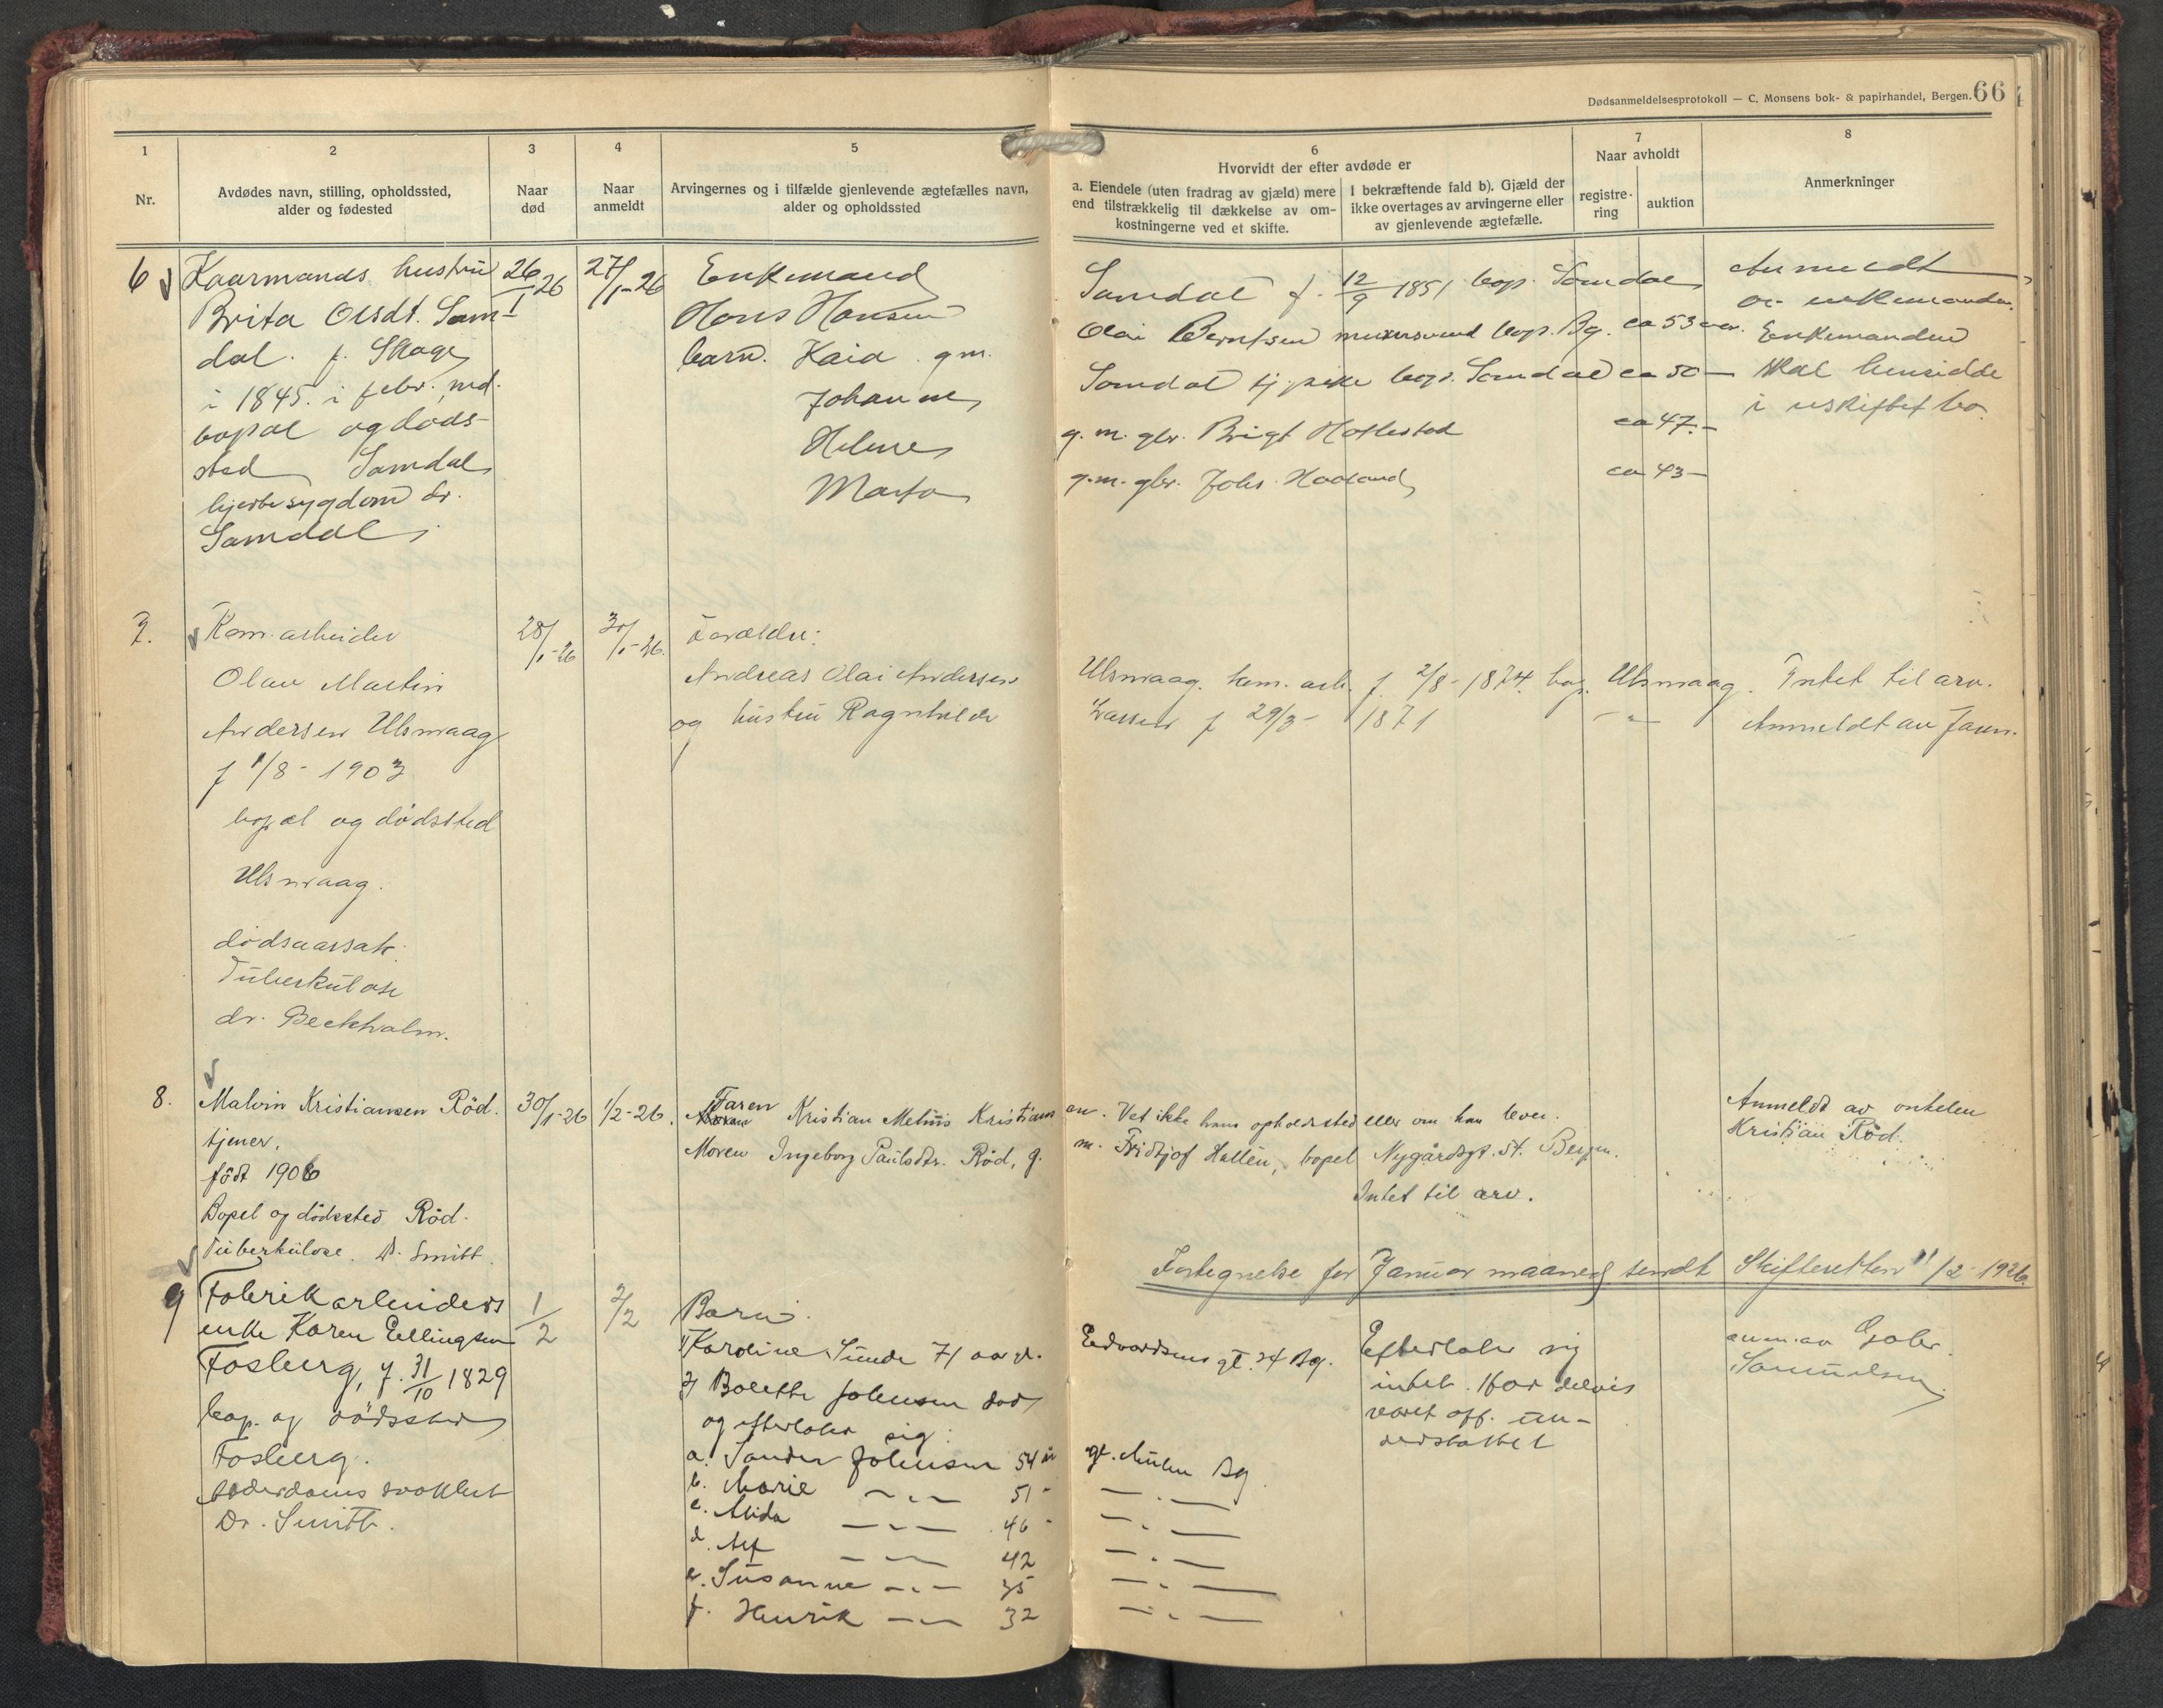 Dødsanmeldelsesprotokoll — C. Monsens bok- & papirhandel, Bergen. 66
1
2
3
4
5
6
7
8
Nr.
Avdødes navn, stilling, opholdssted,
alder og fødested
Naar
død
Naar
anmeldt
Arvingernes og i tilfælde gjenlevende ægtefælles navn,
alder og opholdssted
Hvorvidt der efter avdøde er
a. Eiendele (uten fradrag av gjæld) mere
end tilstrækkelig til dækkelse av om-
kostningerne ved et skifte.
I bekræftende fald b). Gjæld der
ikke overtages av arvingerne eller
av gjenlevende ægtefælle.
Naar avholdt
registre-
ring
auktion
Anmerkninger
6
Kaarmands hustru
Brita Olsdt. Sam-
dal. f. Skage
i 1845. i febr. md.
bopæl og døds-
sted Samdal
hjertesygdom dr.
Samdal
26/1 26
27/1-26
Enkemand
Hans Hansen Samdal f. 12/9 1851 bop. Samdal
barn. Kaia g.m. Olai Berntsen murersvend bop. Bg. ca 53 aar.
Johanne Samdal tj.pike bop. Samdal ca 50 —
Helene g. m. gbr. Brigt ca 47.—
Marta g. m. gbr. Johs. Haaland ca 43 —
Anmeldt
av enkemanden.
Enkemanden
skal hensidde
i uskiftet bo.
7.
Kom.arbeider
Olav Martin
Andersen Ulsmaag
f 1/8 - 1903
bopæl og dødssted
Ulsmaag.
dødsaarsak:
Tuberkulose
dr. Beckholm.
28/1-26
30/1-26.
Forældre:
Andreas Olai Andersen Ulsmaag. kom. arb. f. 2/8 - 1874. bop. Ulsmaag.
og hustru Ragnhilde Larsen f 29/3 - 1871 - " -
Intet til arv.
Anmeldt av faren.
8.
Malvin Kristiansen Röd.
tjener.
födt 1906
Bopel og dödssted Röd.
Tuberkulose. Dr. Smitt.
30/1-26
1/2-26.
Faren Kristian Melius Kristiansen. Vet ikke hans opholdssted eller om han lever.
Moren Ingeborg Paulsdtr. Röd, g. m. Fridtjof Hallén, bopel Nygårdsgt. 54. Bergen.
Intet til arv.
Anmeldt av onkelen
Kristian Röd.
Fortegnelse for Januar maaned sendt Skifteretten 11/2 - 1926.
9
Fabrikarbeiders
enke Karen Ellingsen
Fosberg, f. 31/10 1829
bop. og dødssted
Fosberg.
alderdoms svakhet
Dr. Smith.
1/2
2/2
Barn.
1/ Karoline Sunde 71 aar. Edvardsens gt. 24 Bg.
2/ Bolette Johnsen død
og efterlater sig:
a. Sander Johnsen 54 år gt. Bg.
b. Marie — " — 51 - — " —
c. Alida — " — 46 - — " —
d. Alf — " — 42 — " —
e. Susanne — " — 35 — " —
f. Henrik — " — 32 — " —
Efterlater sig
intet. Har delvis
været off. un-
derstøttet
anm. av Gabr.
Samuelsen.